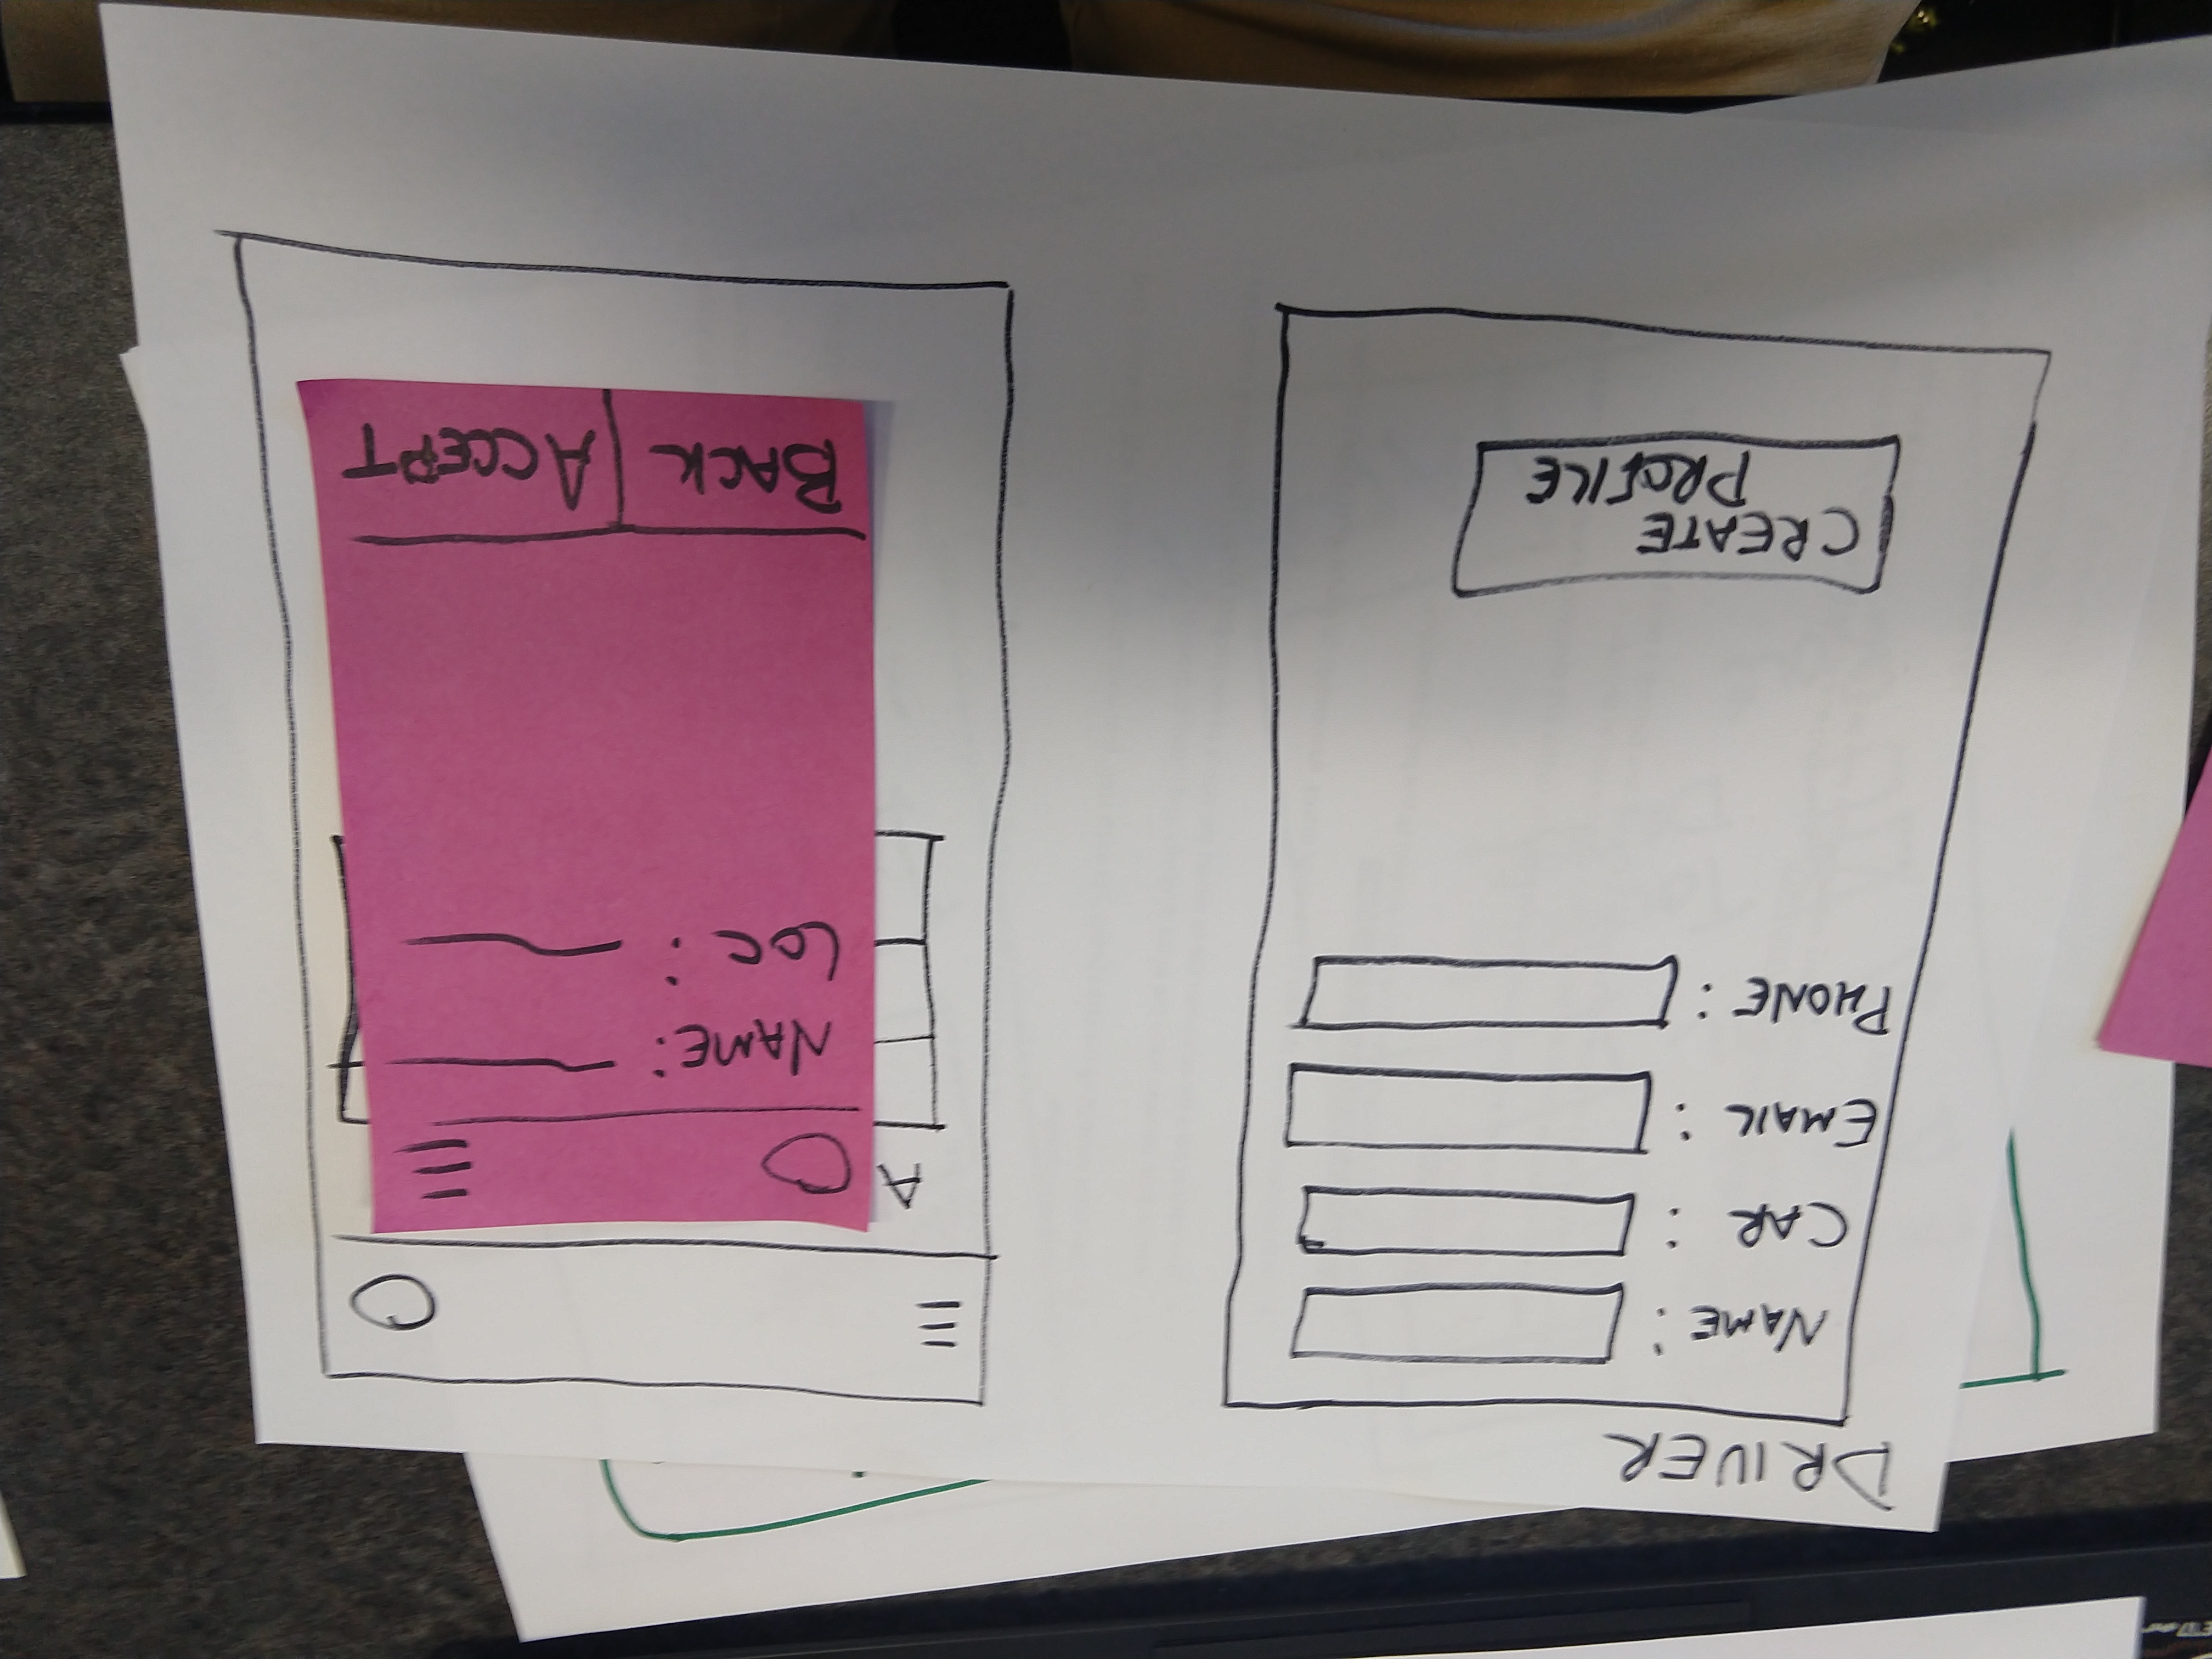 DRIVER
NAME :
CAR :
EMAIL :
PHONE :
CREATE
PROFILE
A
NAME:
LOC :
BACK
ACCEPT